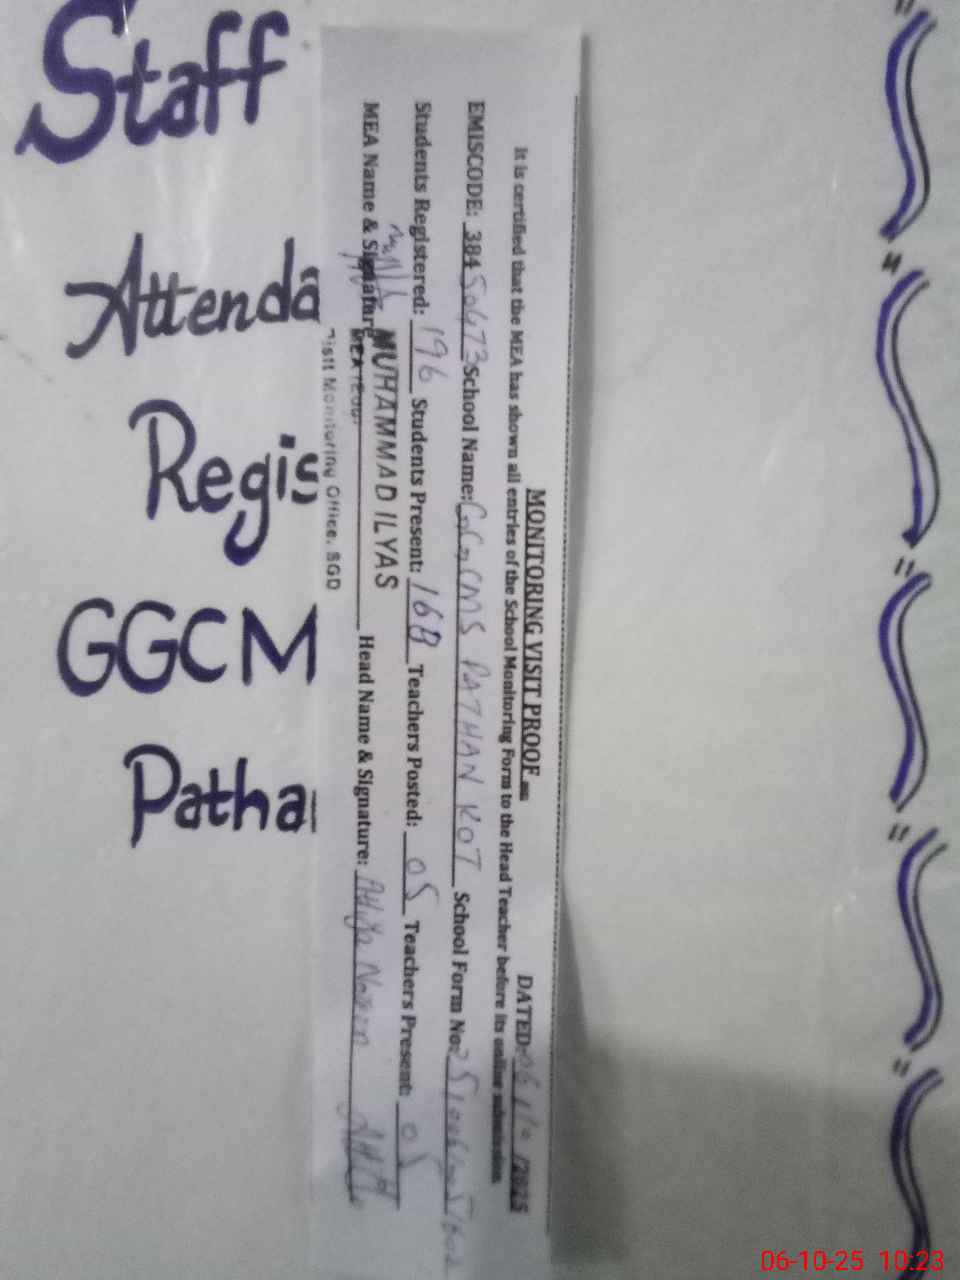 Staff
Attenda
Regis
GGCM
Patha
MONITORING VISIT PROOF
DATED: 06/10/2025
It is certified that the MEA has shown all entries of the School Monitoring Form to the Head Teacher before its online submission.
EMISCODE: 384 School Name: GGCMS PATHAN KOT School Form No:
Students Registered: 196 Students Present: 168 Teachers Posted: 05 Teachers Present: 05
MEA Name & Signature MUHAMMAD ILYAS Head Name & Signature:
Distt Monitoring Office, SGD
06-10-25 10:23